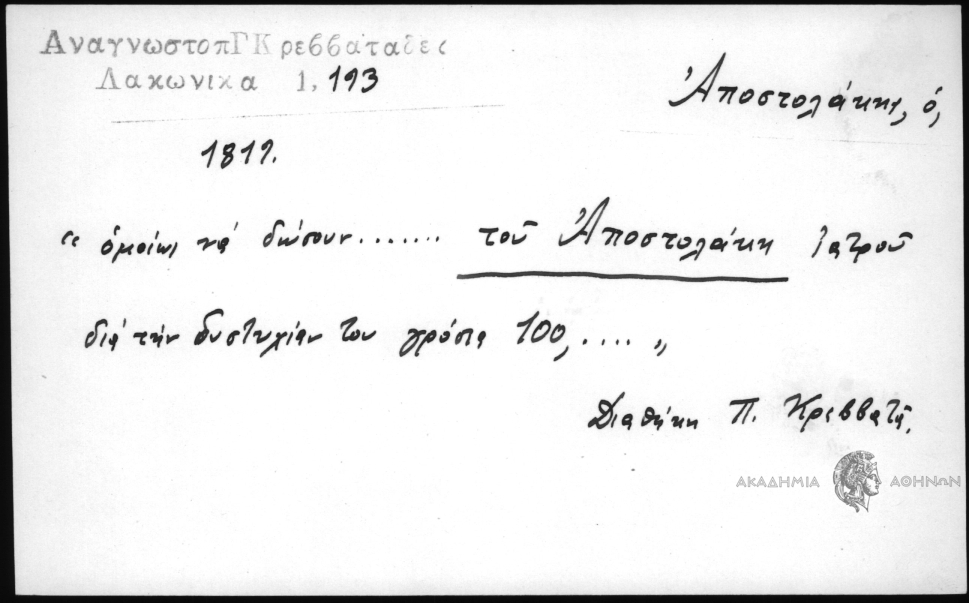 ΑναγνωστοπΓΚρεββαταδες
Λακωνικα 1, 193
Ἀποστολάκης, ὁ,
1819.
“ ὁμοίως νά δώσουν....... τοῦ Ἀποστολάκη ἰατροῦ
διά τήν δυστυχίαν του γρόσια 100,.... „
Διαθήκη Π. Κρεββατᾶ.
ΑΚΑΔΗΜΙΑ ΑΘΗΝΩΝ